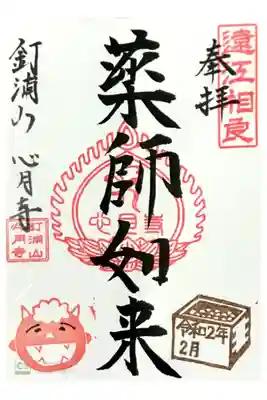 奉拝
遠江相良
薬師如来
心月寺
釘浦山 心月寺
釘浦山
心月寺
令和2年
2月